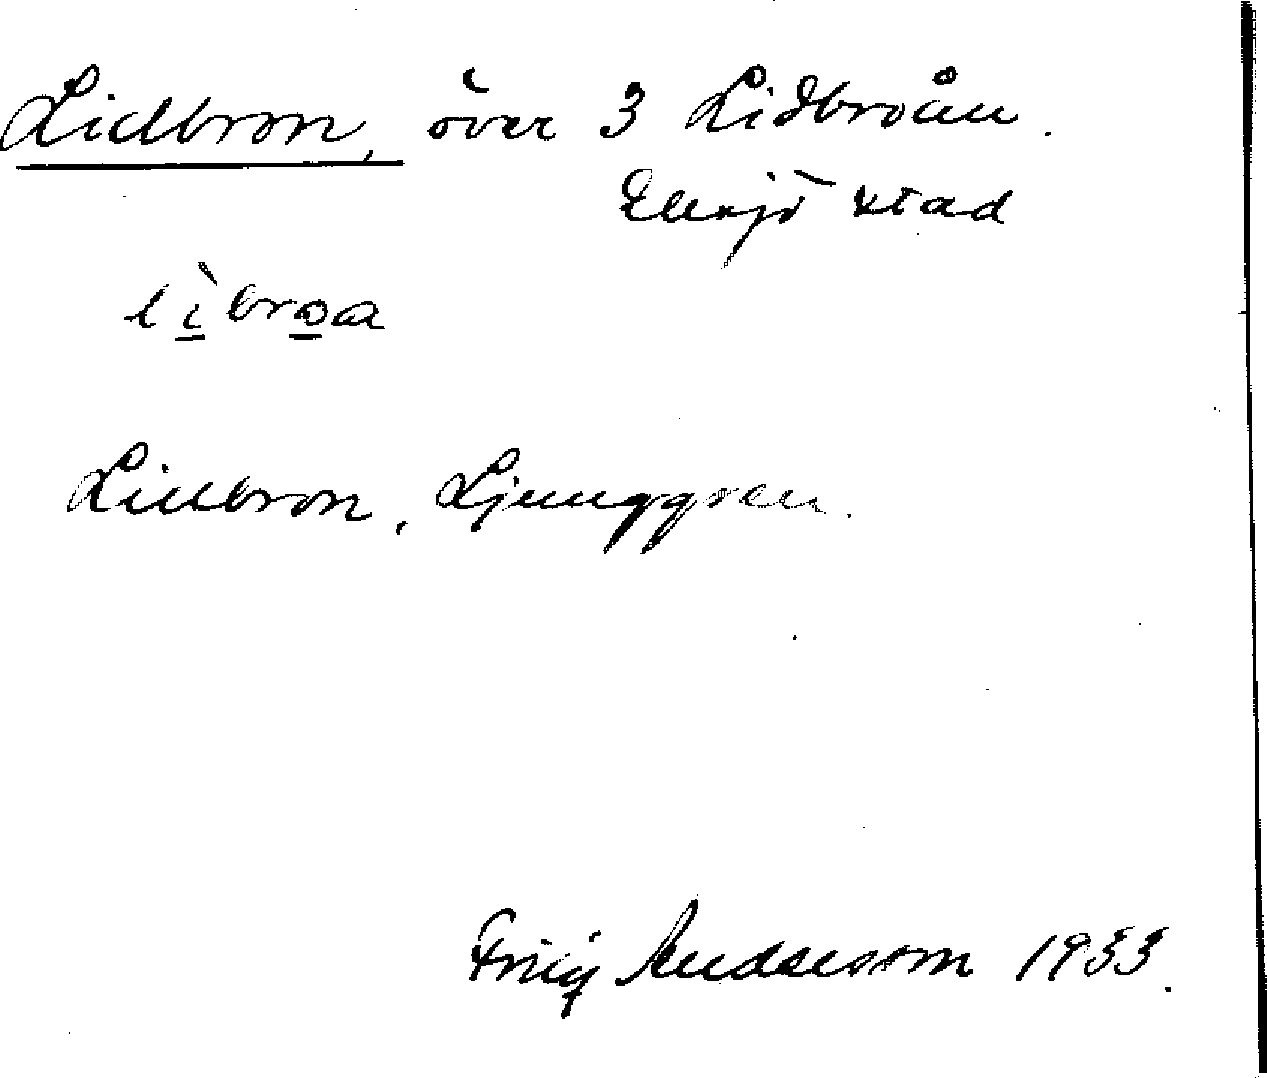 Lidbron, över 3 Lidbroån.
Eksjö stad
lìbroa
Lidbron, Ljunggren.
Andersson 1933.